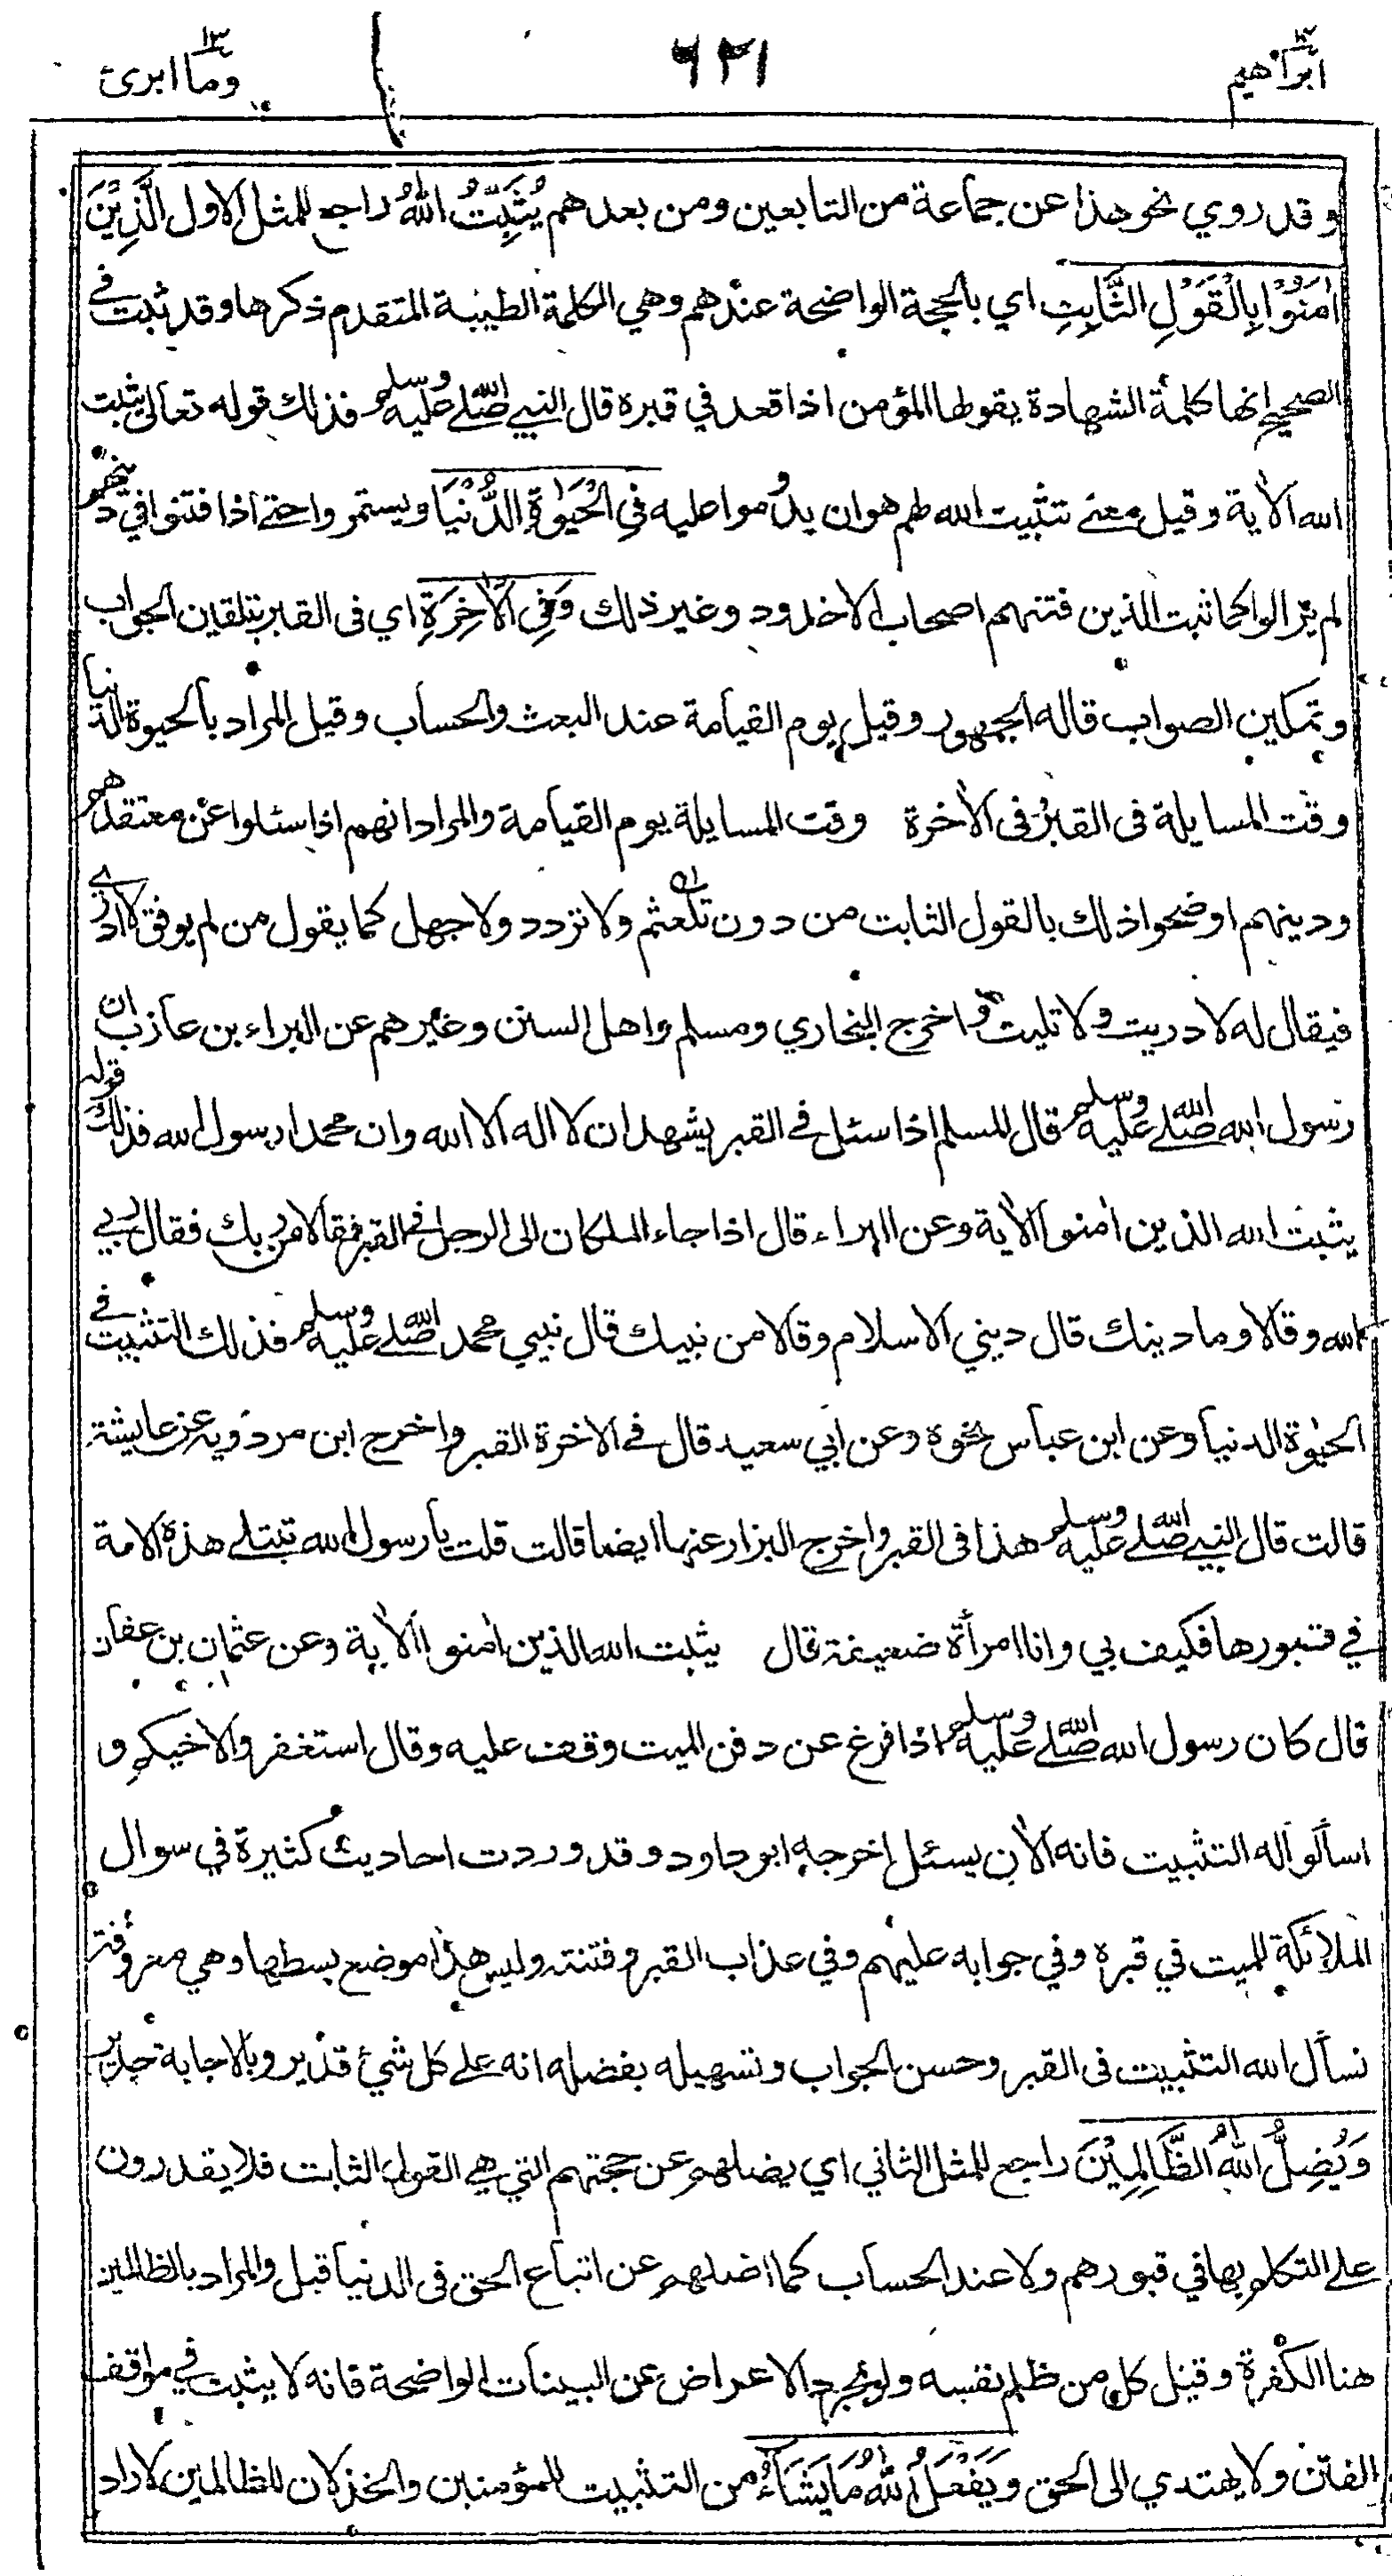 ابراهيم ١٤
٦٢١
وما ابرئ ١٣
وقد روي نحو هذا عن جماعة من التابعين ومن بعدهم يُثَبِّتُ اللّٰهُ راجع للمثل الاول الَّذِيْنَ
اٰمَنُوْا بِالْقَوْلِ الثَّابِتِ اي بالحجة الواضحة عندهم وهي الكلمة الطيبة المتقدم ذكرها وقد ثبت في
الصحيح انها كلمة الشهادة يقولها المؤمن اذا قعد في قبره قال النبي صلى الله عليه وسلم فذلك قوله تعالى يثبت
الله الآية وقيل معنى تثبيت الله لهم هو ان يدوموا عليه فِي الْحَيٰوةِ الدُّنْيَا ويستمروا حتى اذا فتنوا في دينهم
لم يزالوا كما ثبت الذين فتنهم اصحاب الاخدود وغير ذلك وَفِي الْاٰخِرَةِ اي في القبر بتلقين الجواب
وتمكين الصواب قاله الجمهور وقيل يوم القيامة عند البعث والحساب وقيل المراد بالحيوة الدنيا
وقت المسايلة في القبر في الاٰخرة وقت المسايلة يوم القيامة والمراد انهم اذا سئلوا عن معتقدهم
ودينهم اوضحوا ذلك بالقول الثابت من دون تلعثم ولا تردد ولا جهل كما يقول من لم يوفق لا ادري
فيقال له لا دريت ولا تليت واخرج البخاري ومسلم واهل السنن وغيرهم عن البراء بن عازب ان
رسول الله صلى الله عليه وسلم قال للمسلم اذا سئل في القبر يشهد ان لا اله الا الله وان محمدا رسول الله فذلك قوله
يثبت الله الذين اٰمنوا الاٰية وعن البراء قال اذا جاء الملكان الى الرجل في القبر فقالا من ربك فقال ربي
الله وقالا وما دينك قال ديني الاسلام وقالا من نبيك قال نبيي محمد صلى الله عليه وسلم فذلك التثبيت في
الحيٰوة الدنيا وعن ابن عباس نحوه وعن ابي سعيد قال في الاخرة القبر واخرج ابن مردويه عن عايشة
قالت قال النبي صلى الله عليه وسلم هذا في القبر واخرج البزار عنها ايضا قالت قلت يا رسول الله تبتلى هذه الامة
في قبورها فكيف بي وانا امرأة ضعيفة قال يثبت الله الذين اٰمنوا الاٰية وعن عثمان بن عفان
قال كان رسول الله صلى الله عليه وسلم اذا فرغ عن دفن الميت وقف عليه وقال استغفروا لاخيكم و
اسألوا له التثبيت فانه الاٰن يسئل اخرجه ابو داود وقد وردت احاديث كثيرة في سوال
الملائكة للميت في قبره وفي جوابه عليهم وفي عذاب القبر وفتنته وليس هذا موضع بسطها وهي معروفة
نسأل الله التثبيت في القبر وحسن الجواب وتسهيله بفضله انه على كل شيئ قدير وبالاجابة جدير
وَيُضِلُّ اللّٰهُ الظَّالِمِيْنَ راجع للمثل الثاني اي يضلهم عن حجتهم التي هي القول الثابت فلا يقدرون
على التكلم بها في قبورهم ولا عند الحساب كما اضلهم عن اتباع الحق في الدنيا قيل والمراد بالظالمين
هنا الكفرة وقيل كل من ظلم نفسه ولو بمجرد الاعراض عن البينات الواضحة فانه لا يثبت في مواقف
الفتن ولا يهتدي الى الحق وَيَفْعَلُ اللّٰهُ مَا يَشَاءُ من التثبيت للمؤمنين والخذلان للظالمين لا راد